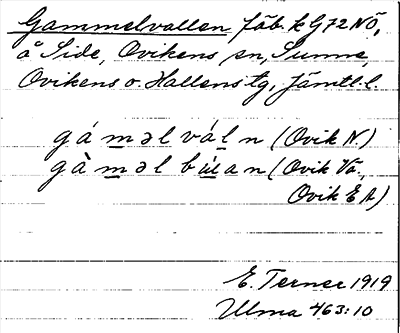 Gammelvallen fäb. k G72NÖ,
å Side, Ovikens sn, Sunne,
Ovikens o. Hallens tg, Jämtl. l.
gámǝl váln (Ovik N.)
gàmǝl búan (Ovik Va.,
Ovik E A)
E. Terner 1919
Ulma 463:10